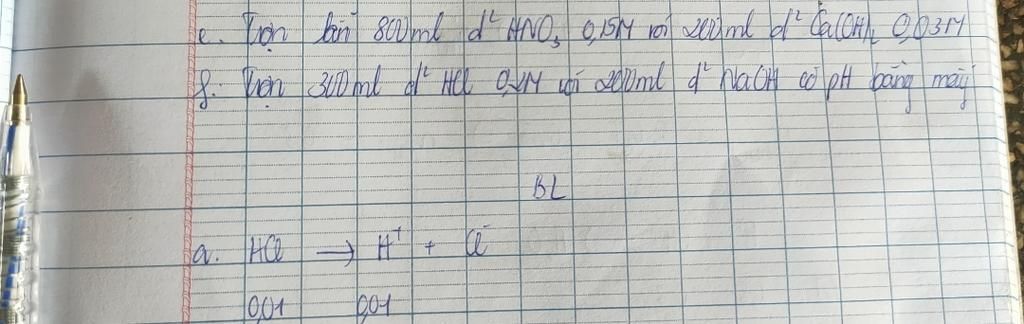 e. Trộn lẫn 800ml d² HNO₃ 0,15M với 200ml d² Ca(OH)₂ 0,03M
f. Trộn 300ml d² HCl M với 200ml d² NaOH có pH bằng mấy
BL
a. HCl → H⁺ + Cl⁻
0,01 0,01